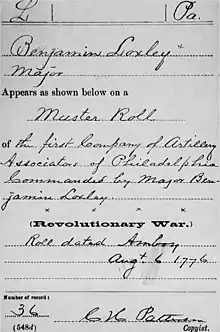 L Pa.
Benjamin Loxley
Major
Appears as shown below on a
Muster Roll
of the first Company of Artillery
Associators of Philadelphia
Commanded by Major Ben-
jamin Loxley.
x x x x
(Revolutionary War.)
Roll dated Amboy
Augt. 6 1776
Number of record:
36
(548d) Copyist.